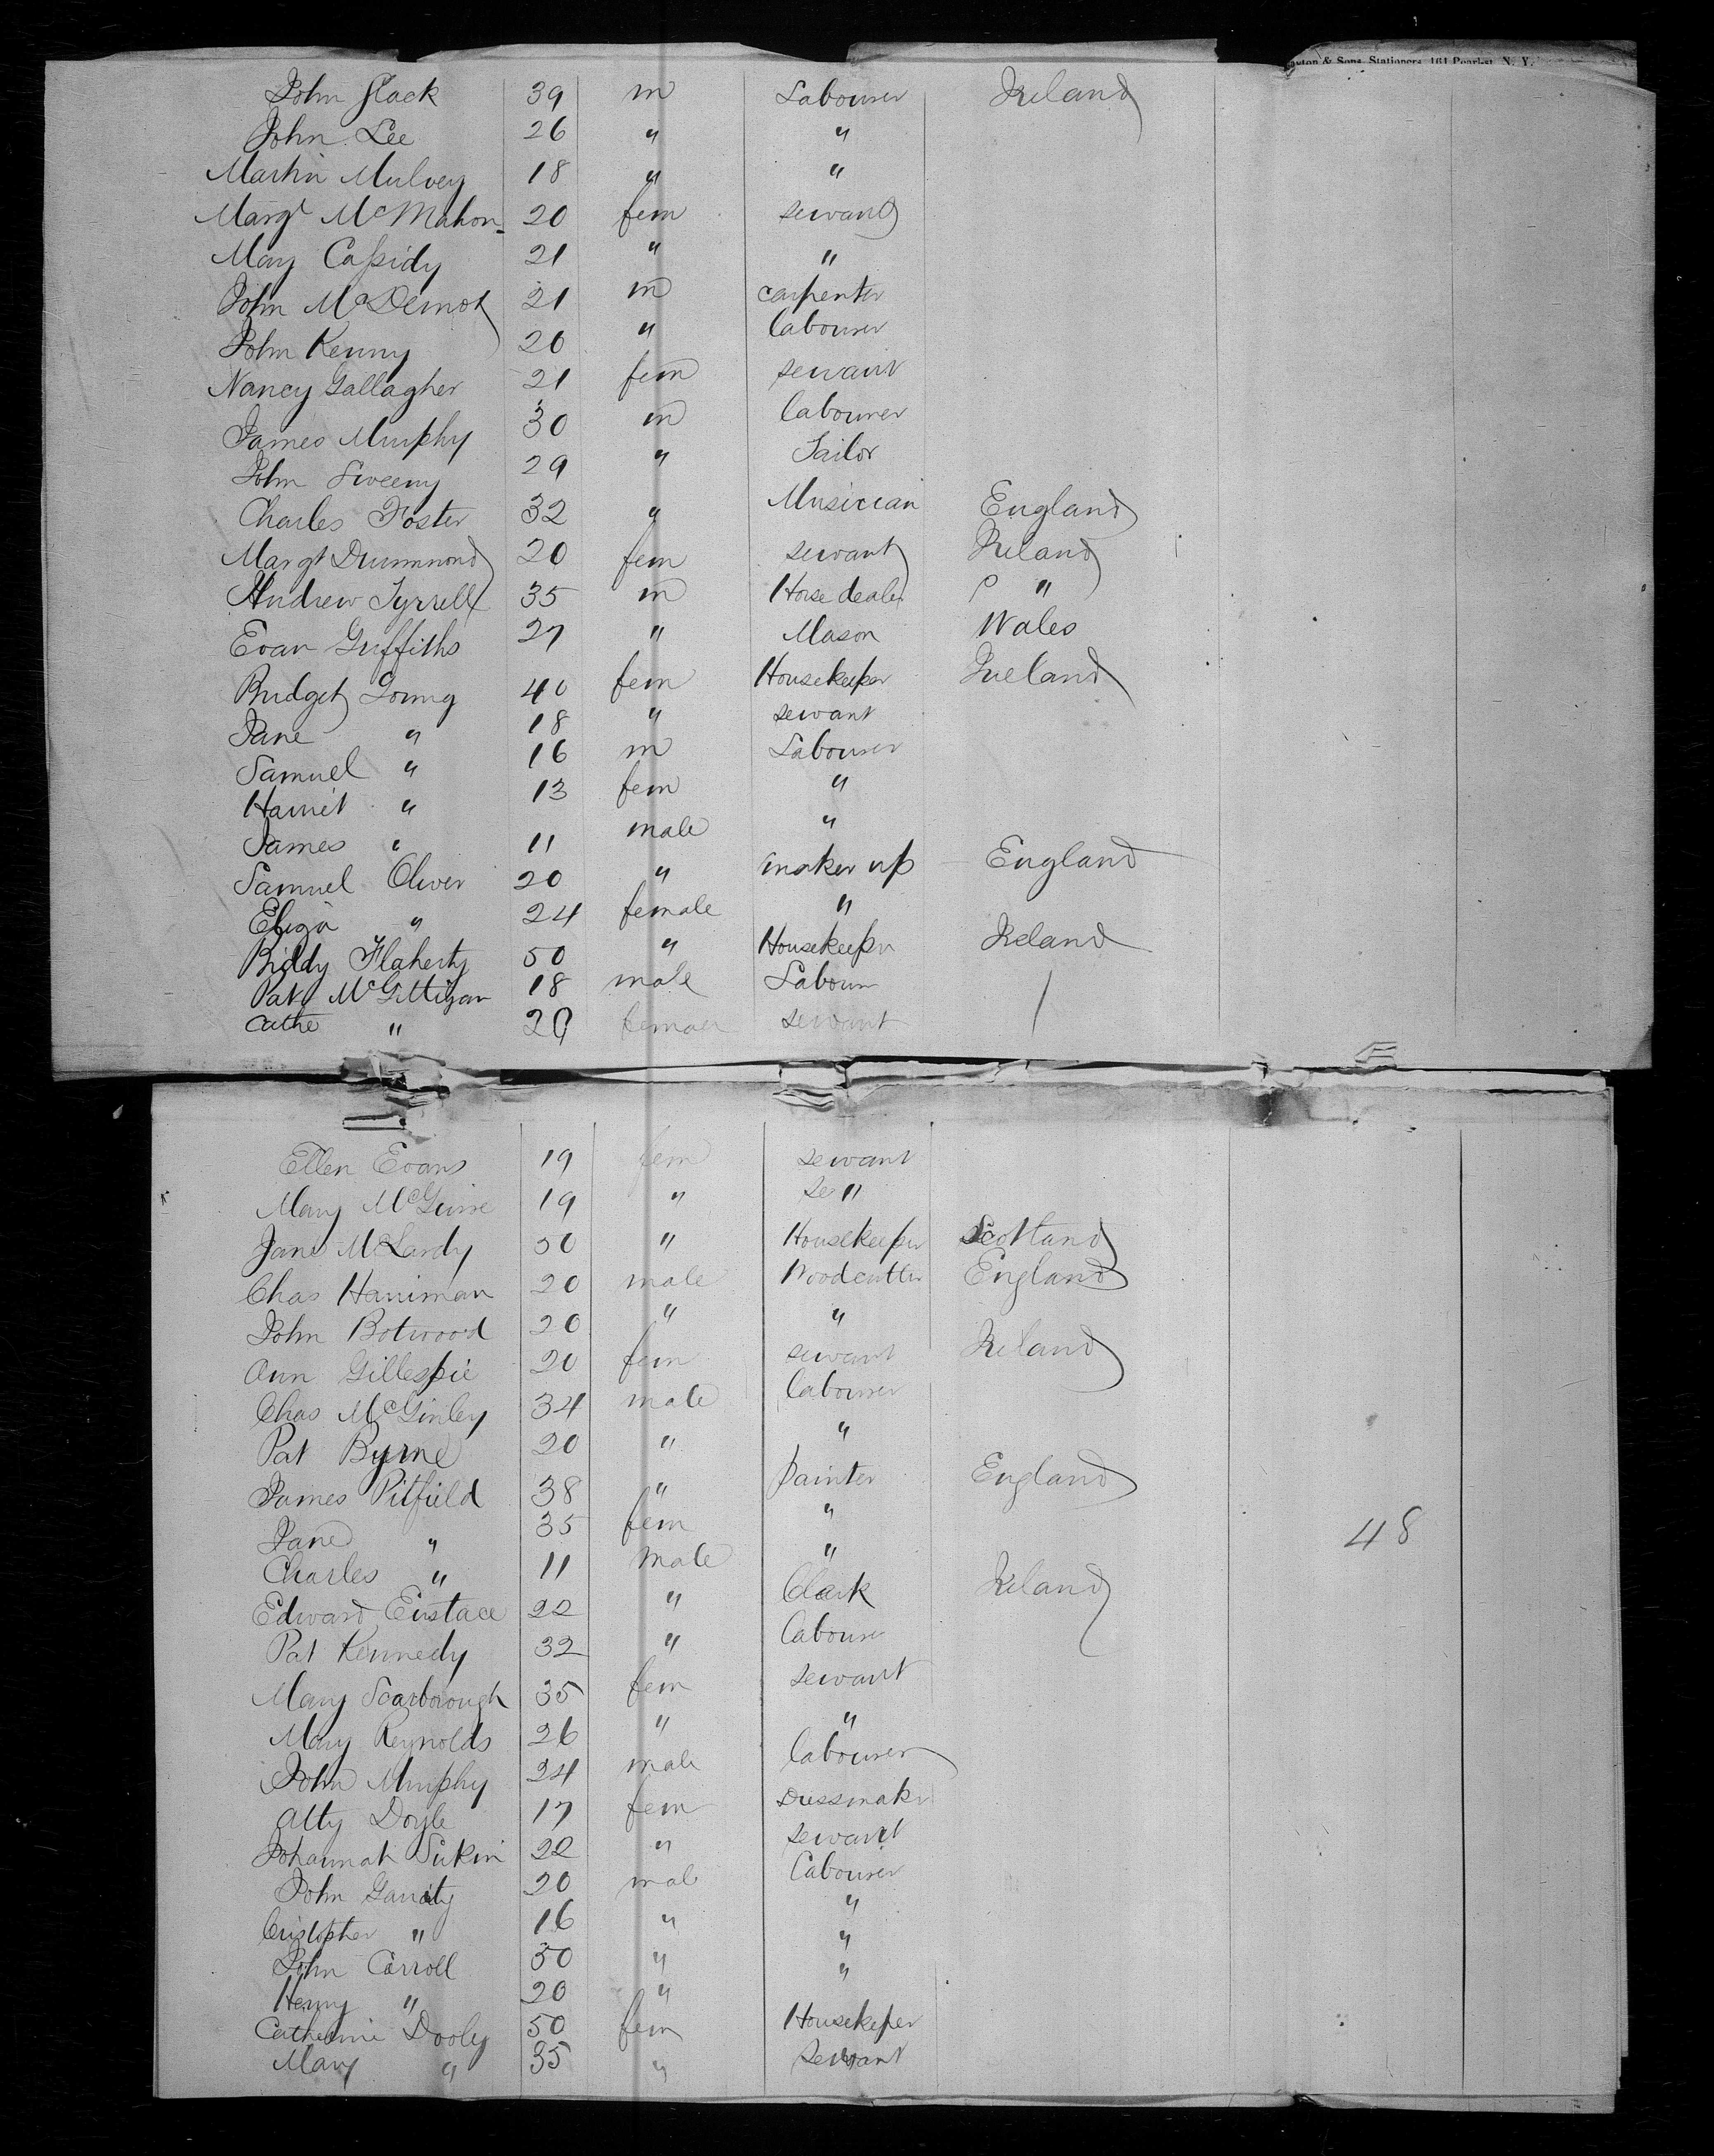 & Sons, Stationers, 161 Pearl st. N. Y.
John Slack 39 m Labourer Ireland
John Lee 26 " "
Martin Mulvey 18 " "
Margt McMahon 20 fem servant
Mary Cassidy 21 " "
John McDermot 21 m carpenter
John Kenny 20 " labourer
Nancy Gallagher 21 fem servant
James Murphy 30 m labourer
John Sweeny 29 " Tailor
Charles Foster 32 " Musician England
Margt Drummond 20 fem servant Ireland
Andrew Tyrrell 35 m Horse dealer "
Evan Griffiths 27 " Mason Wales
Bridget Young 40 fem Housekeeper Ireland
Jane " 18 " servant
Samuel " 16 m Labourer
Harriet " 13 fem "
James " 11 male "
Samuel Oliver 20 " maker up England
Eliza " 24 female "
Biddy Flaherty 50 " Housekeeper Ireland
Pat McGettigan 18 male Labour
Cathe " 20 female servant
Ellen Evans 19 fem servant
Mary McGuire 19 " se "
Jane McLardy 50 " Housekeeper Scotland
Chas Harriman 20 male Woodcutter England
John Botwood 20 " "
Ann Gillespie 20 fem servant Ireland
Chas McGinley 34 male labourer
Pat Byrne 20 " "
James Pitfield 38 " painter England
Jane " 35 fem "
48
Charles " 11 male "
Edward Eustace 22 " Clark Ireland
Pat Kennedy 32 " Labourer
Mary Scarborough 35 fem servant
Mary Reynolds 26 " "
John Murphy 24 male labourer
Atty Doyle 17 fem Dressmaker
Johannah 22 " servant
John Garrity 20 male Labourer
Cristopher " 16 " "
John Carroll 30 " "
Henry " 20 " "
Catherine Dooly 50 fem Housekeper
Mary " 35 " servant